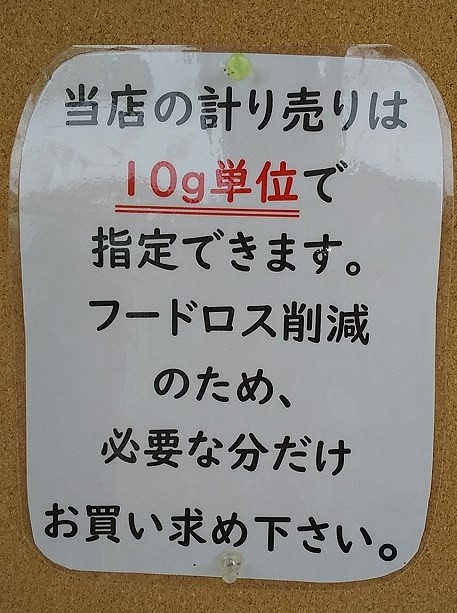 当店の計り売りは
10g単位で
指定できます。
フードロス削減
のため、
必要な分だけ
お買い求め下さい。